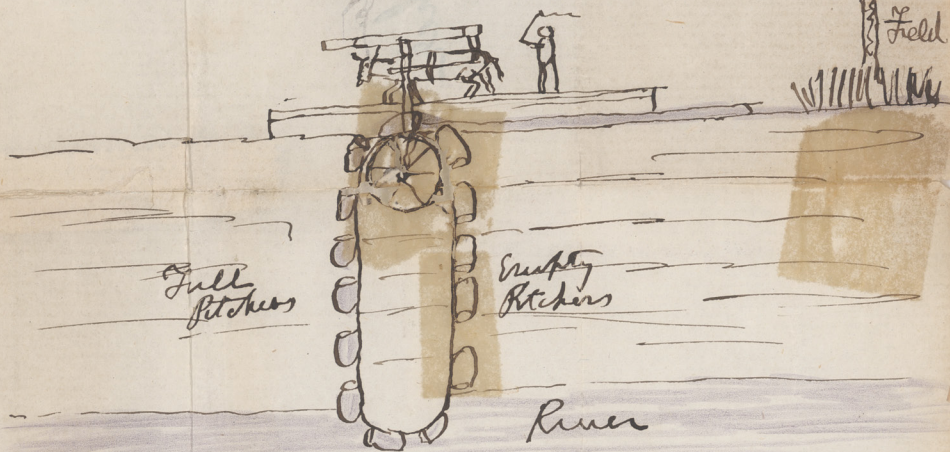 Field
Full
Pitchers
Empty
Pitchers
River